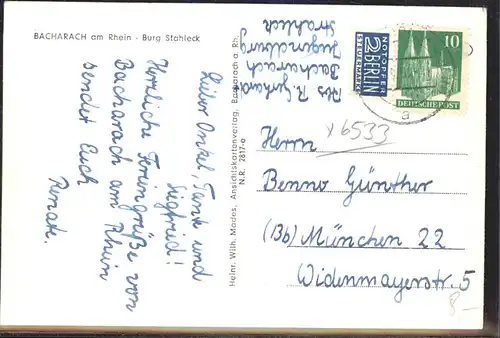 BACHARACH am Rhein - Burg Stahleck
Lieber Onkel, Tante und
Siegfried!
Herzliche Feriengrüße von
Bacharach am Rhein
sendet Euch
Renate.
Abs. R. Gerhard
Bacharach
Jugendburg
Stahleck
Heinr. Wilh. Mades, Ansichtskartenverlag, Bacharach a. Rh.
N.R. 7817-e
NOTOPFER
2 BERLIN
STEUERMARKE
10
DEUTSCHE POST
a
x 6533
Herrn
Benno Günther
(13b) München 22
Widenmayerstr. 5
8-